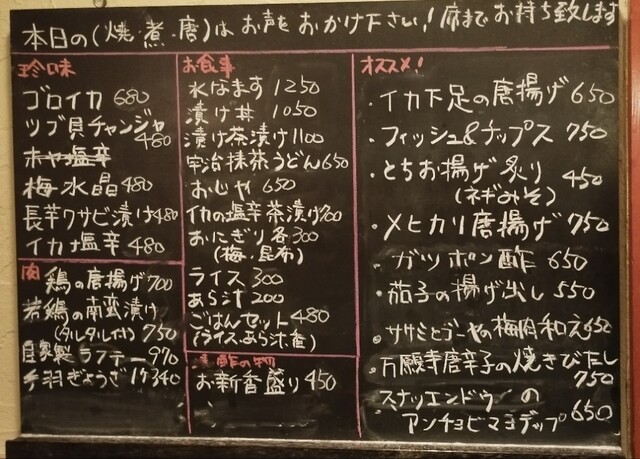 本日の(焼・煮・唐)はお声をおかけ下さい!席までお持ち致します
珍味
ゴロイカ 680
ツブ貝チャンジャ
480
ホヤ塩辛
梅水晶 480
長芋ワサビ漬け 480
イカ塩辛 480
肉
鶏の唐揚げ 700
若鶏の南蛮漬け
(タルタル付) 750
自家製ラフテー 970
手羽ぎょうざ 1ケ340
お食事
水なます 1250
漬け丼 1050
漬け茶漬け 1100
宇治抹茶うどん 650
おじや 650
イカの塩辛茶漬け 700
おにぎり各300
(梅・昆布)
ライス 300
あら汁 200
ごはんセット 480
(ライス、あら汁、香)
漬 酢の物
お新香盛り 450
オススメ!
・イカ下足の唐揚げ 650
・フィッシュ&チップス 750
・とちお揚げ炙り
(ネギみそ) 450
・メヒカリ唐揚げ 750
・ガツポン酢 650
・茄子の揚げ出し 550
・ササミとゴーヤの梅肉和え 650
・万願寺唐辛子の焼きびたし
750
・スナップエンドウの
アンチョビマヨディップ 650